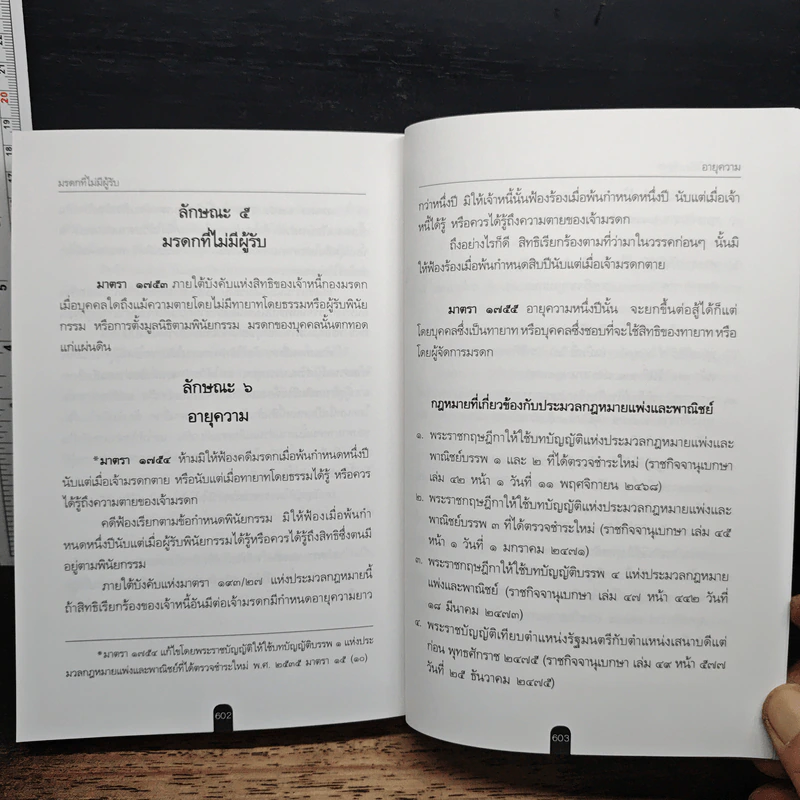 มรดกที่ไม่มีผู้รับ
ลักษณะ ๕
มรดกที่ไม่มีผู้รับ
มาตรา ๑๗๕๓ ภายใต้บังคับแห่งสิทธิของเจ้าหนี้กองมรดก
เมื่อบุคคลใดถึงแก่ความตายโดยไม่มีทายาทโดยธรรมหรือผู้รับพินัย
กรรม หรือการตั้งมูลนิธิตามพินัยกรรม มรดกของบุคคลนั้นตกทอด
แก่แผ่นดิน
ลักษณะ ๖
อายุความ
*มาตรา ๑๗๕๔ ห้ามมิให้ฟ้องคดีมรดกเมื่อพ้นกำหนดหนึ่งปี
นับแต่เมื่อเจ้ามรดกตาย หรือนับแต่เมื่อทายาทโดยธรรมได้รู้ หรือควร
ได้รู้ถึงความตายของเจ้ามรดก
คดีฟ้องเรียกตามข้อกำหนดพินัยกรรม มิให้ฟ้องเมื่อพ้นกำ
หนดหนึ่งปีนับแต่เมื่อผู้รับพินัยกรรมได้รู้หรือควรได้รู้ถึงสิทธิซึ่งตนมี
อยู่ตามพินัยกรรม
ภายใต้บังคับแห่งมาตรา ๑๙๓/๒๗ แห่งประมวลกฎหมายนี้
ถ้าสิทธิเรียกร้องของเจ้าหนี้อันมีต่อเจ้ามรดกมีกำหนดอายุความยาว
*มาตรา ๑๗๕๔ แก้ไขโดยพระราชบัญญัติให้ใช้บทบัญญัติบรรพ ๑ แห่งประ
มวลกฎหมายแพ่งและพาณิชย์ที่ได้ตรวจชำระใหม่ พ.ศ. ๒๕๓๕ มาตรา ๑๕ (๑๐)
602
อายุความ
กว่าหนึ่งปี มิให้เจ้าหนี้นั้นฟ้องร้องเมื่อพ้นกำหนดหนึ่งปี นับแต่เมื่อเจ้า
หนี้ได้รู้ หรือควรได้รู้ถึงความตายของเจ้ามรดก
ถึงอย่างไรก็ดี สิทธิเรียกร้องตามที่ว่ามาในวรรคก่อนๆ นั้นมิ
ให้ฟ้องร้องเมื่อพ้นกำหนดสิบปีนับแต่เมื่อเจ้ามรดกตาย
มาตรา ๑๗๕๕ อายุความหนึ่งปีนั้น จะยกขึ้นต่อสู้ได้ก็แต่
โดยบุคคลซึ่งเป็นทายาท หรือบุคคลซึ่งชอบที่จะใช้สิทธิของทายาท หรือ
โดยผู้จัดการมรดก
กฎหมายที่เกี่ยวข้องกับประมวลกฎหมายแพ่งและพาณิชย์
๑. พระราชกฤษฎีกาให้ใช้บทบัญญัติแห่งประมวลกฎหมายแพ่งและ
พาณิชย์บรรพ ๑ และ ๒ ที่ได้ตรวจชำระใหม่ (ราชกิจจานุเบกษา
เล่ม ๔๒ หน้า ๑ วันที่ ๑๑ พฤศจิกายน ๒๔๖๘)
๒. พระราชกฤษฎีกาให้ใช้บทบัญญัติแห่งประมวลกฎหมายแพ่งและ
พาณิชย์บรรพ ๓ ที่ได้ตรวจชำระใหม่ (ราชกิจจานุเบกษา เล่ม ๔๕
หน้า ๑ วันที่ ๑ มกราคม ๒๔๗๑)
๓. พระราชกฤษฎีกาให้ใช้บทบัญญัติบรรพ ๔ แห่งประมวลกฎหมาย
แพ่งและพาณิชย์ (ราชกิจจานุเบกษา เล่ม ๔๗ หน้า ๔๔๒ วันที่
๑๘ มีนาคม ๒๔๗๓)
๔. พระราชบัญญัติเทียบตำแหน่งรัฐมนตรีกับตำแหน่งเสนาบดีแต่
ก่อน พุทธศักราช ๒๔๗๕ (ราชกิจจานุเบกษา เล่ม ๔๙ หน้า ๕๗๗
วันที่ ๒๕ ธันวาคม ๒๔๗๕)
603